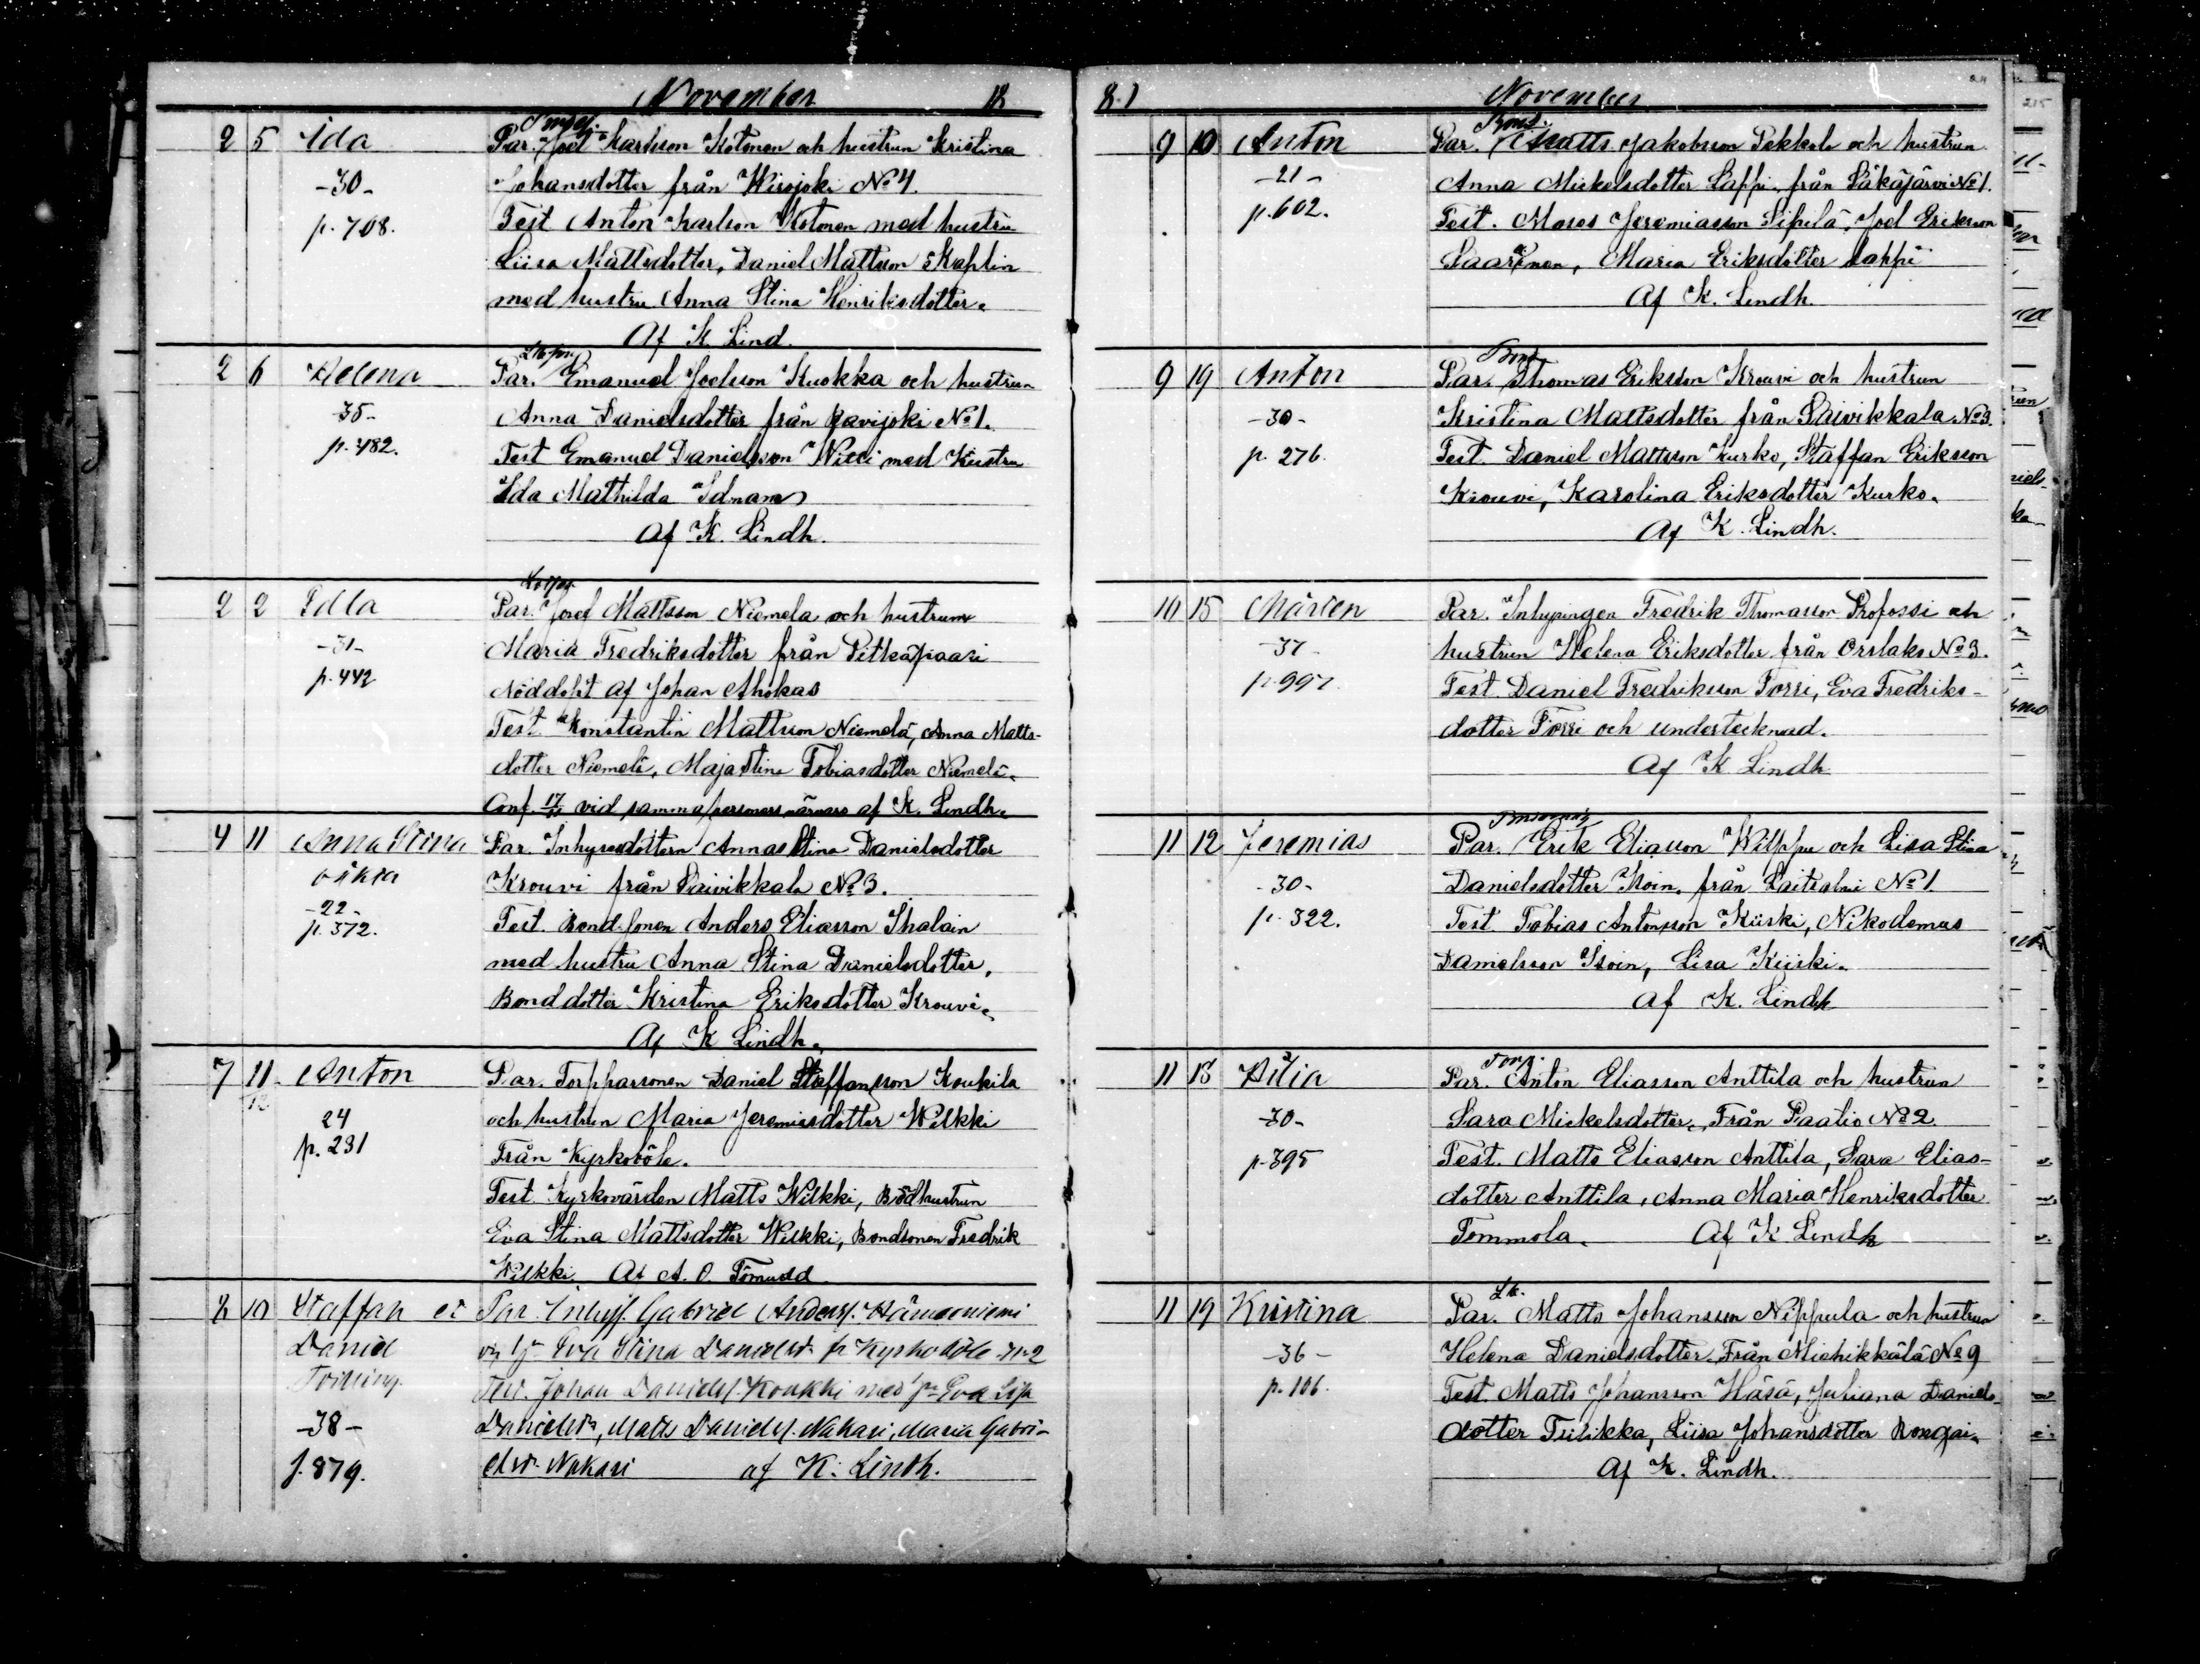 November 18
2 5 Ida Par. Joel Karlsson Kotonen och hustrun Kristina
-30- Johansdotter från Wirojoki No 4.
p. 708. Test Anton Karlson Kotonen med hustru
Liisa Mattsdotter, Daniel Mattson Skaplin
med hustru Anna Stina Henriksdotter.
Af K. Lind.
2 6 Helena Par. Emanuel Joelsson Kuokka och hustrun
-35- Anna Danielsdotter från Ravijoki No 1.
p. 482. Test Emanuel Danielsson med hustru
Ida Mathilda
Af K. Lindh.
2 2 Par. Josef Mattsson Niemelä och hustrun
-31- Maria Fredriksdotter från Pitkäpaasi
p. 442 Nöddöpt af Johan Ahokas
Test Konstantin Mattsson Niemelä, Anna Matts-
dotter Niemelä, Maja Stina Tobiasdotter Niemelä.
Conf. vid samma personers närvaro af K. Lindh.
4 11 Anna Stina Par. Inhysesdottern Anna Stina Danielsdotter
oäkta Krouvi från Paivikkala No 3.
-22- Test. Bond.sonen Anders Eliasson Ihalain
p. 372. med hustru Anna Stina Danielsdotter,
Bonddotter Kristina Eriksdotter Krouvi.
Af K Lindh.
7 11 Anton Par. Torpparsonen Daniel Staffansson Koukila
12
24 och hustrun Maria Jeremiasdotter Wilkki
p. 231 Från Kyrkoböle.
Test. Kyrkovärden Matts Wilkki, Bodhustrun
Eva Stina Mattsdotter Wilkki, Bondsonen Fredrik
Wilkki Af A. O. Törnudd
8 10 Staffan et Par. Inhys. Gabriel Anders. Hämeeniemi
Daniel Eva Stina fr Kyrkoböle No 2
Test. Johan Daniels. Koukki med Eva Lisa
-38- Danielsdr, Matts Daniels. Nakari, Maria Gabri-
p. 879. elsdr. Nakari af K. Lindh.
8.1 November
9 10 Anton Par. Bond. Matts Jakobsson Pekkala och hustrun
-21- Anna Mickelsdotter Lappi, från Säkäjärvi No 1.
p. 602. Test. Moses Jeremiasson Sipilä, Joel Erikson
Saarinen, Maria Eriksdotter Lappi
Af K. Lindh.
9 19 Anton Par. Bond Thomas Eriksson Krouvi och hustrun
-30- Kristina Mattsdotter från Paivikkala No 3.
p. 276. Test. Daniel Mattsson Kurko, Staffan Eriksson
Krouvi, Karolina Eriksdotter Kurko.
Af K. Lindh.
10 15 Mårten Par. Inhysingen Fredrik Thomasson Profossi och
-37- hustrun Helena Eriksdotter från Orslaks No 3.
p. 997. Test. Daniel Fredriksson Torri, Eva Fredriks-
dotter Torri och undertecknad.
Af K. Lindh
11 12 Jeremias Par. Erik Eliasson Wilppu och Lisa Stina
-30- Danielsdotter Koin, från Laitsalmi No 1
p. 322. Test Tobias Antonsson Kiiski, Nikodemus
Danielsson Koin, Lisa Kiiski.
Af K. Lindh
11 13 Hilia Par. Torp. Anton Eliasson Anttila och hustrun
-30- Sara Mickelsdotter, Från Paatio No 2
p. 395 Test. Matts Eliasson Anttila, Sara Elias-
dotter Anttila, Anna Maria Henriksdotter
Tommola. Af K Lindh
11 19 Kristina Par. Matts Johansson Nippula och hustrun
-36- Helena Danielsdotter, Från Miehikkälä No 9
p. 106. Test. Matts Johansson Häsä, Juliana Daniels-
dotter Tulikka, Liisa Johansdotter Rongai.
Af K. Lindh.
215